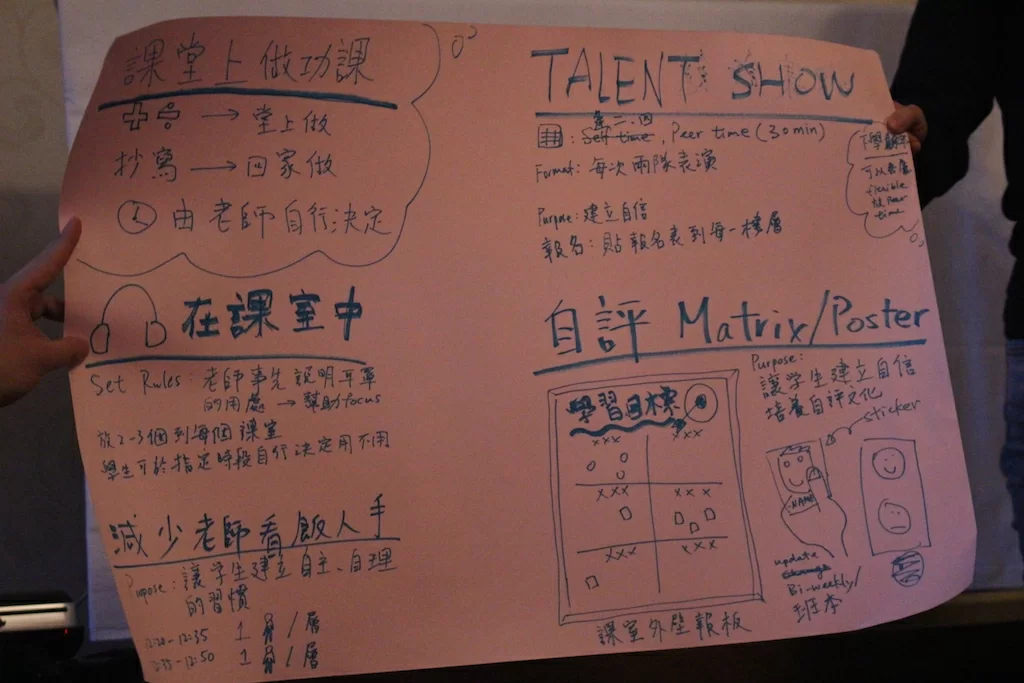 課堂上做功課
→ 堂上做
抄寫 → 回家做
由老師自行決定
在課室中
Set Rules: 老師事先說明耳罩
的用處 → 幫助focus
放2-3個到每個課室
學生可於指定時段自行決定用不用
減少老師看飯人手
Purpose: 讓學生建立自主、自理
的習慣
12:20-12:35 1 /層
12:35-12:50 1 /層
TALENT SHOW
二、四
: Self time, Peer time (30min)
Format: 每次兩隊表演
Purpose: 建立自信
報名: 貼報名表到每一樓層
下學期
可以考慮
flexible
peer
time
自評 Matrix/Poster
Purpose:
讓學生建立自信
培養自評文化
sticker
學習目標
xxx
xxx xxx
xxx xxx
NAME
update
change
Bi-weekly/
班本
課室外壁報板